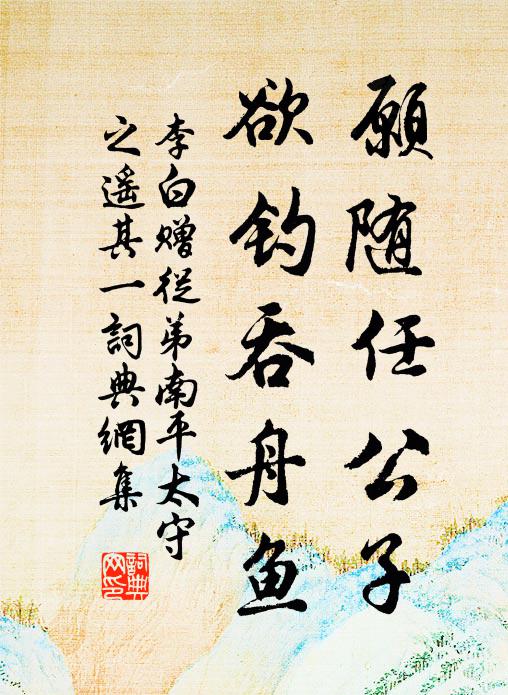 願随任公子
欲钓吞舟鱼
李白赠從弟南平太守
之遥其一詞典網集
詞典
网印